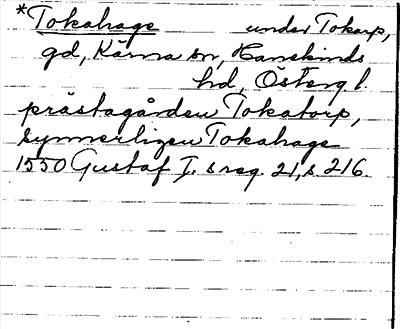 *Tokahage under Tokarp,
gd, Kärna sn, Hanekinds
hd, Östergl.
prästagården Tokatorp,
synnerligen Tokahage
1550 Gustaf I. s reg. 21, s. 216.